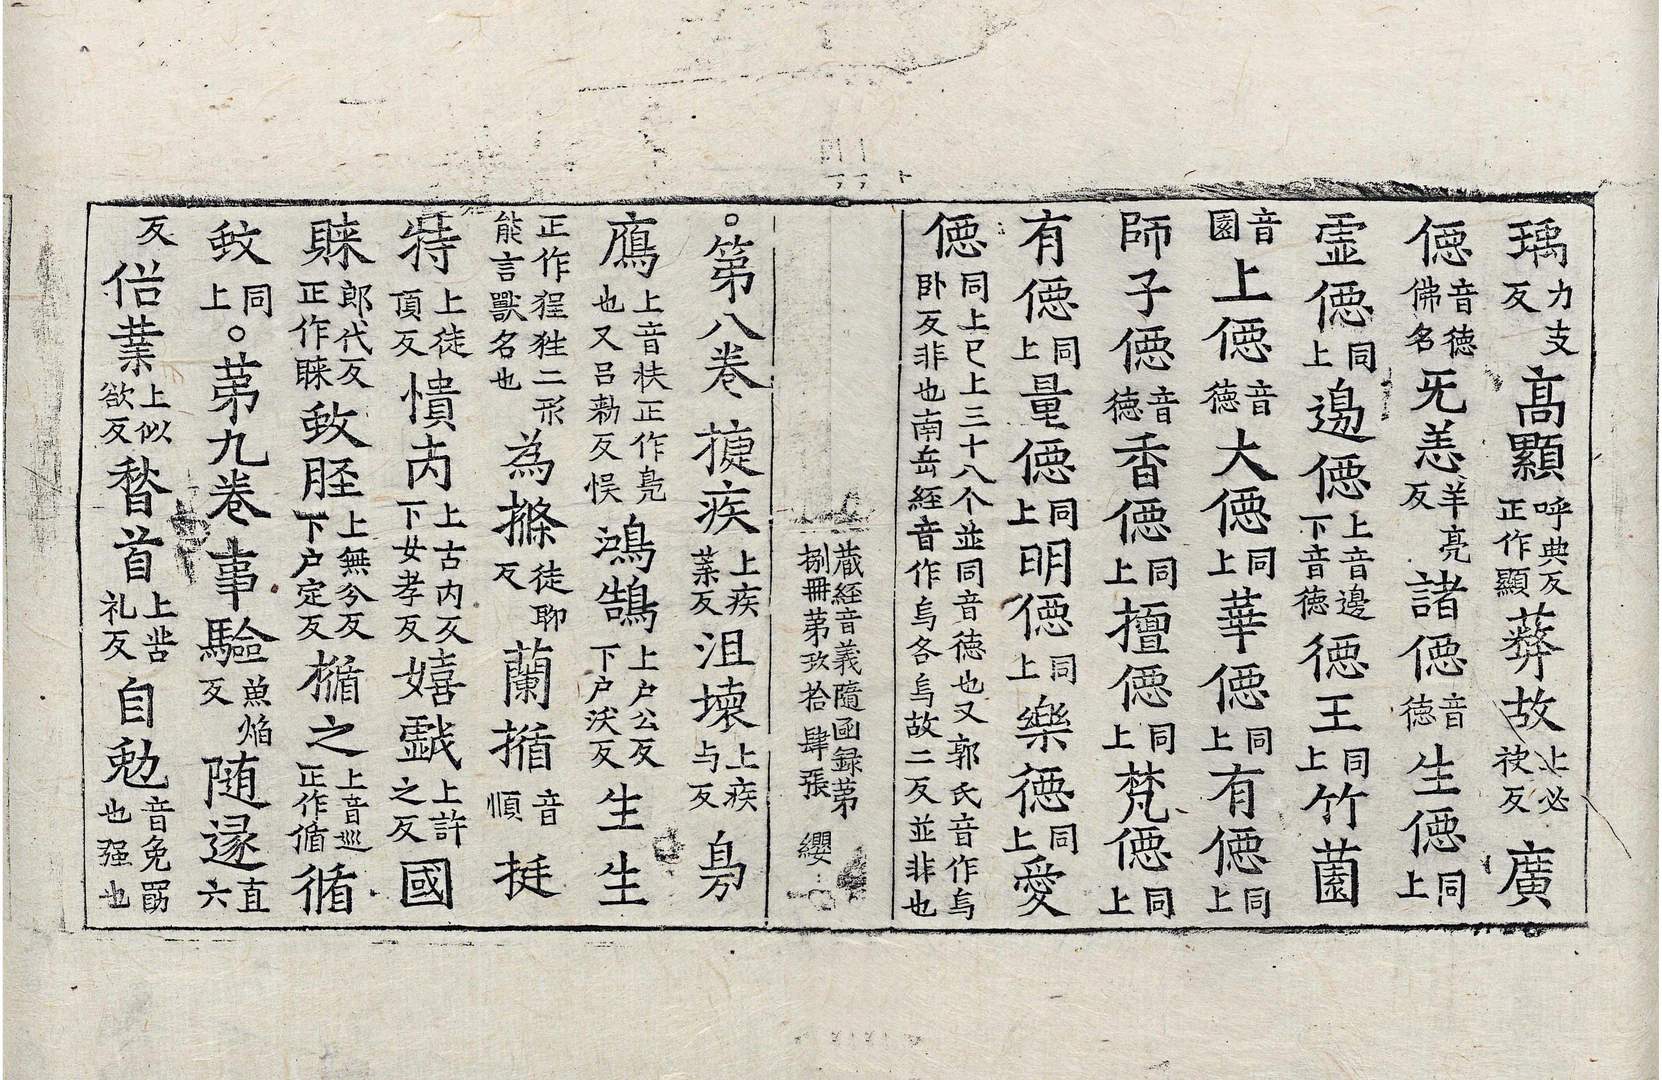 瑀力支反高顯呼典反正作顯蕣故上必袂反廣
德音德佛名旡恙羊亮反諸德音德生德同上
霊德同上邊德上音邊下音德德王同上竹薗
音園上德音德大德同上華德同上有德同上
師子德音德香德同上擅德同上梵德同上
有德同上量德同上明德同上樂德同上愛
德同上巳上三十八个並同音德也又郭氏音作烏卧反非也南岳經音作烏各烏故二反並非也
蔵經音義隨函録苐捌冊苐玖拾肆張 纓
。第八卷 㨗疾上疾葉反沮壞上疾与反
鳫上音扶正作鳬也又吕勑反悮鴻鵠上户公反下户沃反生生
正作狌狌二形能言獸名也為滌徒聊反蘭揗音順挺
特上徒頂反憒丙上古内反下女孝反嬉戱上許之反國
睐郎代反正作睞蚊脛上無兮反下户定反楯之上音巡正作循循
蚊同上。苐九卷 事驗魚焰反随遂直六
反俗業上似欲反䭫首上苦礼反自勉音免勗也强也